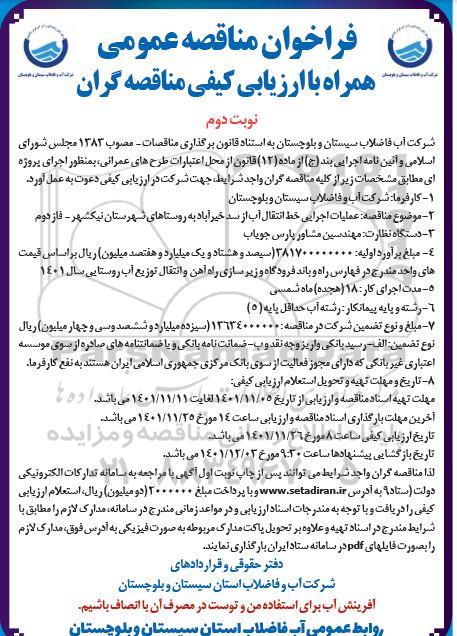 فراخوان مناقصه عمومی
همراه با ارزیابی کیفی مناقصه گران
نوبت دوم
شرکت آب فاضلاب سیستان و بلوچستان به استناد قانون برگذاری مناقصات - مصوب ۱۳۸۳ مجلس شورای
اسلامی و آئین نامه اجرایی بند (ج) از ماده (۱۲) قانون از محل اعتبارات طرح های عمرانی، بمنظور اجرای پروژه
ای مطابق مشخصات زیر از کلیه مناقصه گران واجد شرایط، جهت شرکت در ارزیابی کیفی دعوت به عمل آورد.
۱- کارفرما: شرکت آب و فاضلاب سیستان و بلوچستان
۲- موضوع مناقصه: عملیات اجرایی خط انتقال آب از سد خیرآباد به روستاهای شهرستان نیکشهر - فاز دوم
۳- دستگاه نظارت: مهندسین مشاور پارس جویاب
۴- مبلغ برآورد اولیه: ۳۸۱۷۰۰۰۰۰۰۰۰ (سیصد و هشتاد و یک میلیارد و هفتصد میلیون) ریال بر اساس قیمت
های واحد مندرج در فهارس راه و باند فرودگاه و زیر سازی راه آهن و انتقال توزیع آب روستایی سال ۱۴۰۱
۵- مدت اجرای کار: ۱۸ (هجده) ماه شمسی
۶- رشته و پایه پیمانکار: رشته آب حداقل پایه (۵)
۷- مبلغ و نوع تضمین شرکت در مناقصه: ۱۳۶۳۴۰۰۰۰۰۰ (سیزده میلیارد و ششصد وسی و چهار میلیون) ریال
نوع تضمین: الف- رسید بانکی واریز وجه نقد و ب- ضمانت نامه بانکی و یا ضمانتنامه های صادره از سوی موسسه
اعتباری غیر بانکی که دارای مجوز فعالیت از سوی بانک مرکزی جمهوری اسلامی ایران هستند به نفع کارفرما.
۸- تاریخ و مهلت تهیه و تحویل استعلام ارزیابی کیفی:
مهلت تهیه اسناد مناقصه و ارزیابی از تاریخ ۱۴۰۱/۱۱/۰۵ لغایت ۱۴۰۱/۱۱/۱۱ می باشد.
آخرین مهلت بارگذاری اسناد مناقصه و ارزیابی ساعت ۱۴ مورخ ۱۴۰۱/۱۱/۲۵ می باشد.
تاریخ ارزیابی کیفی ساعت ۸ مورخ ۱۴۰۱/۱۱/۲۶ می باشد.
تاریخ بازگشایی پیشنهادها ساعت ۹:۳۰ مورخ ۱۴۰۱/۱۲/۰۳ می باشد.
لذا مناقصه گران واجد شرایط می توانند پس از چاپ نوبت اول آگهی با مراجعه به سامانه تدارکات الکترونیکی
دولت (ستاد) به آدرس www.setadiran.ir و با پرداخت مبلغ ۲۰۰۰۰۰۰ (دو میلیون) ریال، استعلام ارزیابی
کیفی را دریافت و با توجه به مندرجات اسناد ارزیابی و در مواعد زمانی مندرج در سامانه، مدارک لازم را مطابق با
شرایط مندرج در اسناد تهیه و علاوه بر تحویل پاکت مدارک مربوطه به صورت فیزیکی به آدرس فوق، مدارک لازم
را بصورت فایلهای pdf در سامانه ستاد ایران بارگذاری نمایند.
دفتر حقوقی و قراردادهای
شرکت آب و فاضلاب استان سیستان و بلوچستان
آفرینش آب برای استفاده من و توست در مصرف آن با انصاف باشیم.
روابط عمومی آب فاضلاب استان سیستان و بلوچستان